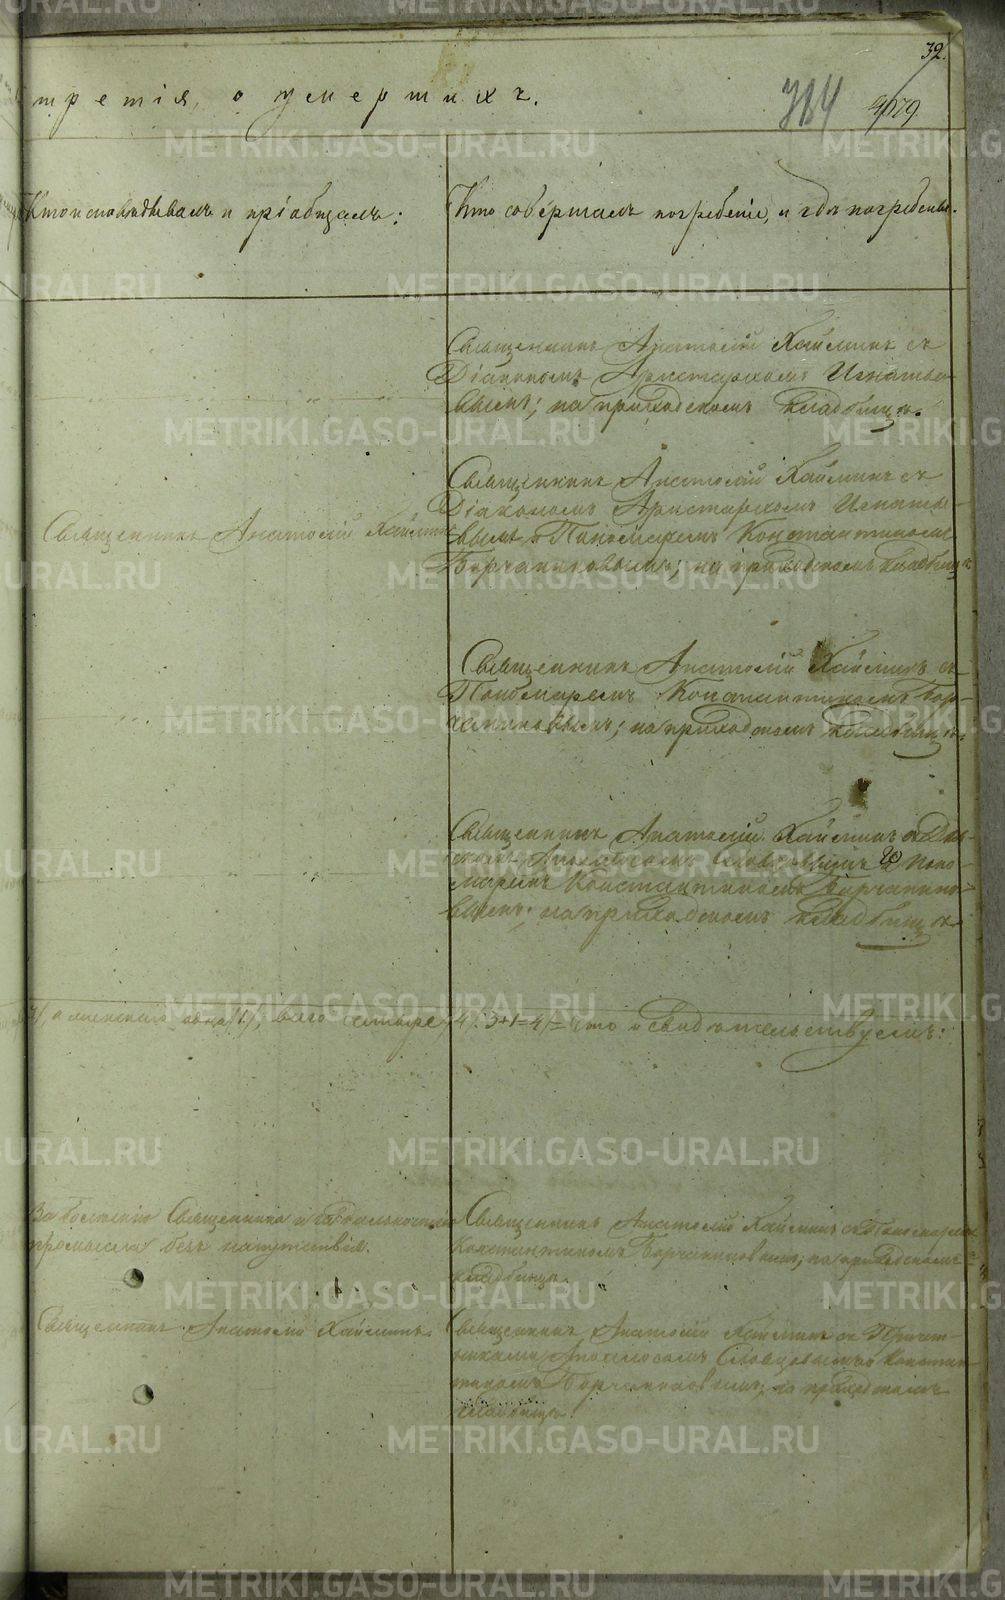 32.
третія, о умершихъ.
384
Кто исповѣдывалъ и пріобщалъ:
Кто совершалъ погребеніе, и гдѣ погребены.
Священникъ Анатолій Хаймин съ
Діакономъ Аристархомъ Игнатье-
вымъ; на приходскомъ кладбищѣ.
Священникъ Анатолій Хаймин
Священникъ Анатолій Хаймин съ
Діакономъ Аристархомъ Игнатье-
вымъ и Пономаремъ Константиномъ
Борчаниновымъ; на приходскомъ кладбищѣ
Священникъ Анатолій Хаймин съ
Пономаремъ Константиномъ Бор-
чаниновымъ; на приходскомъ кладбищѣ.
Священникъ Анатолій Хаймин съ Дья-
и Поно-
маремъ Константиномъ Борчанино-
вымъ; на приходскомъ кладбищѣ.
3/, а женска одна /1/, всего четыре /4/. 3+1=4/= что и свидѣтельствуемъ:
За болезнію Священника и
промысла безъ напутствія.
Священникъ Анатолій Хаймин съ Пономаремъ
Константиномъ Борчаниновымъ; на приходскомъ
кладбищѣ.
Священникъ Анатолій Хаймин.
Священникъ Анатолій Хаймин съ Причет-
никами Словцовымъ и Констан-
тиномъ Борчаниновымъ; на приходскомъ
кладбищѣ.
METRIKI.GASO-URAL.RU